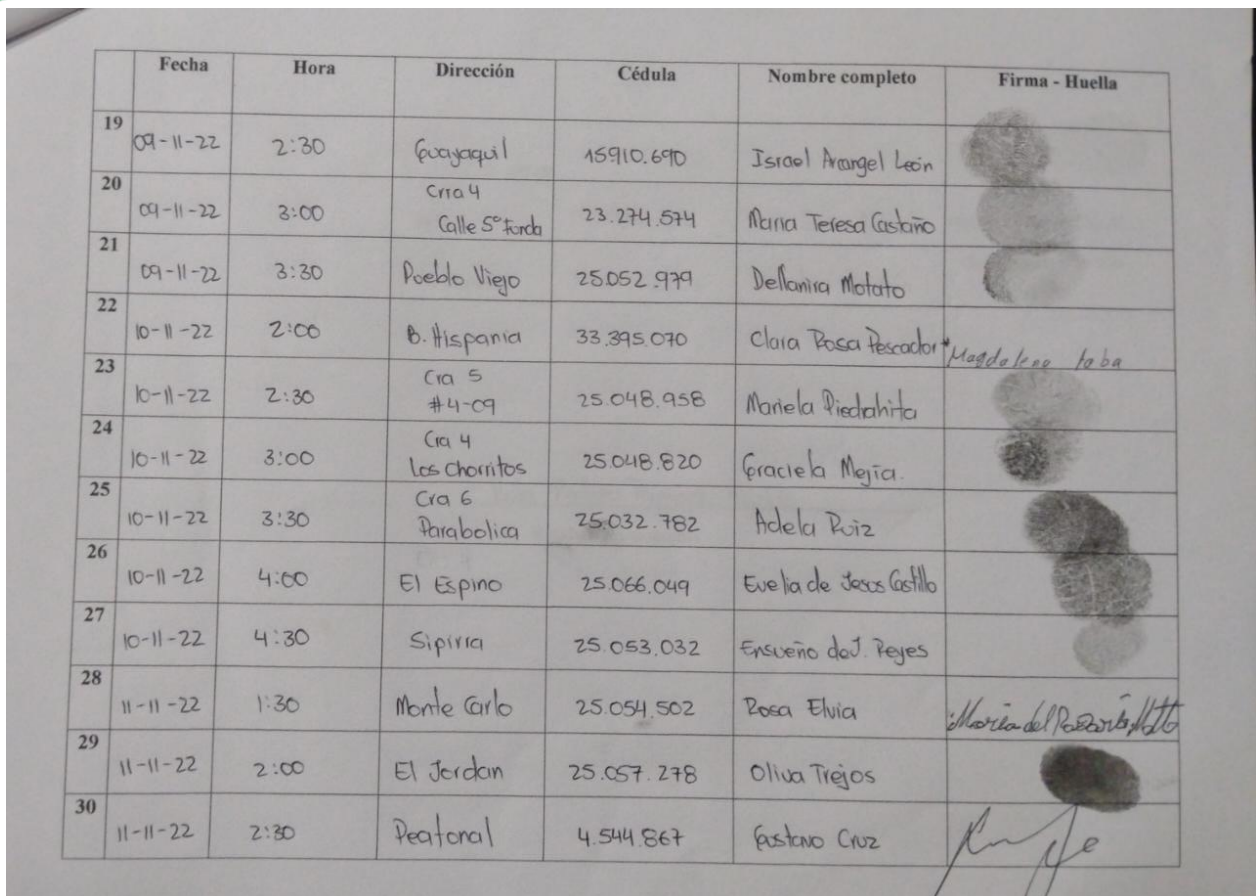 Fecha Hora Dirección Cédula Nombre completo Firma - Huella
19 09-11-22 2:30 Guayaquil 15910.690 Israel Arcangel León
20 09-11-22 3:00 Crra 4 Calle 5° fonda 23.274.574 Maria Teresa Castaño
21 09-11-22 3:30 Pueblo Viejo 25.052.979 Dellanira Motato
22 10-11-22 2:00 B. Hispania 33.395.070 Clara Rosa Pescador Magdalena taba
23 10-11-22 2:30 Cra 5 #4-09 25.048.958 Mariela Piedrahita
24 10-11-22 3:00 Cra 4 Los Chorritos 25.048.820 Graciela Mejía.
25 10-11-22 3:30 Cra 6 Parabolica 25.032.782 Adela Ruiz
26 10-11-22 4:00 El Espino 25.066.049 Evelia de Jesus Castillo
27 10-11-22 4:30 Sipirra 25.053.032 Ensueño de J. Reyes
28 11-11-22 1:30 Monte Carlo 25.054.502 Rosa Elvia Maria del
29 11-11-22 2:00 El Jordan 25.057.278 Oliva Trejos
30 11-11-22 2:30 Peatonal 4.544.867 Gustavo Cruz